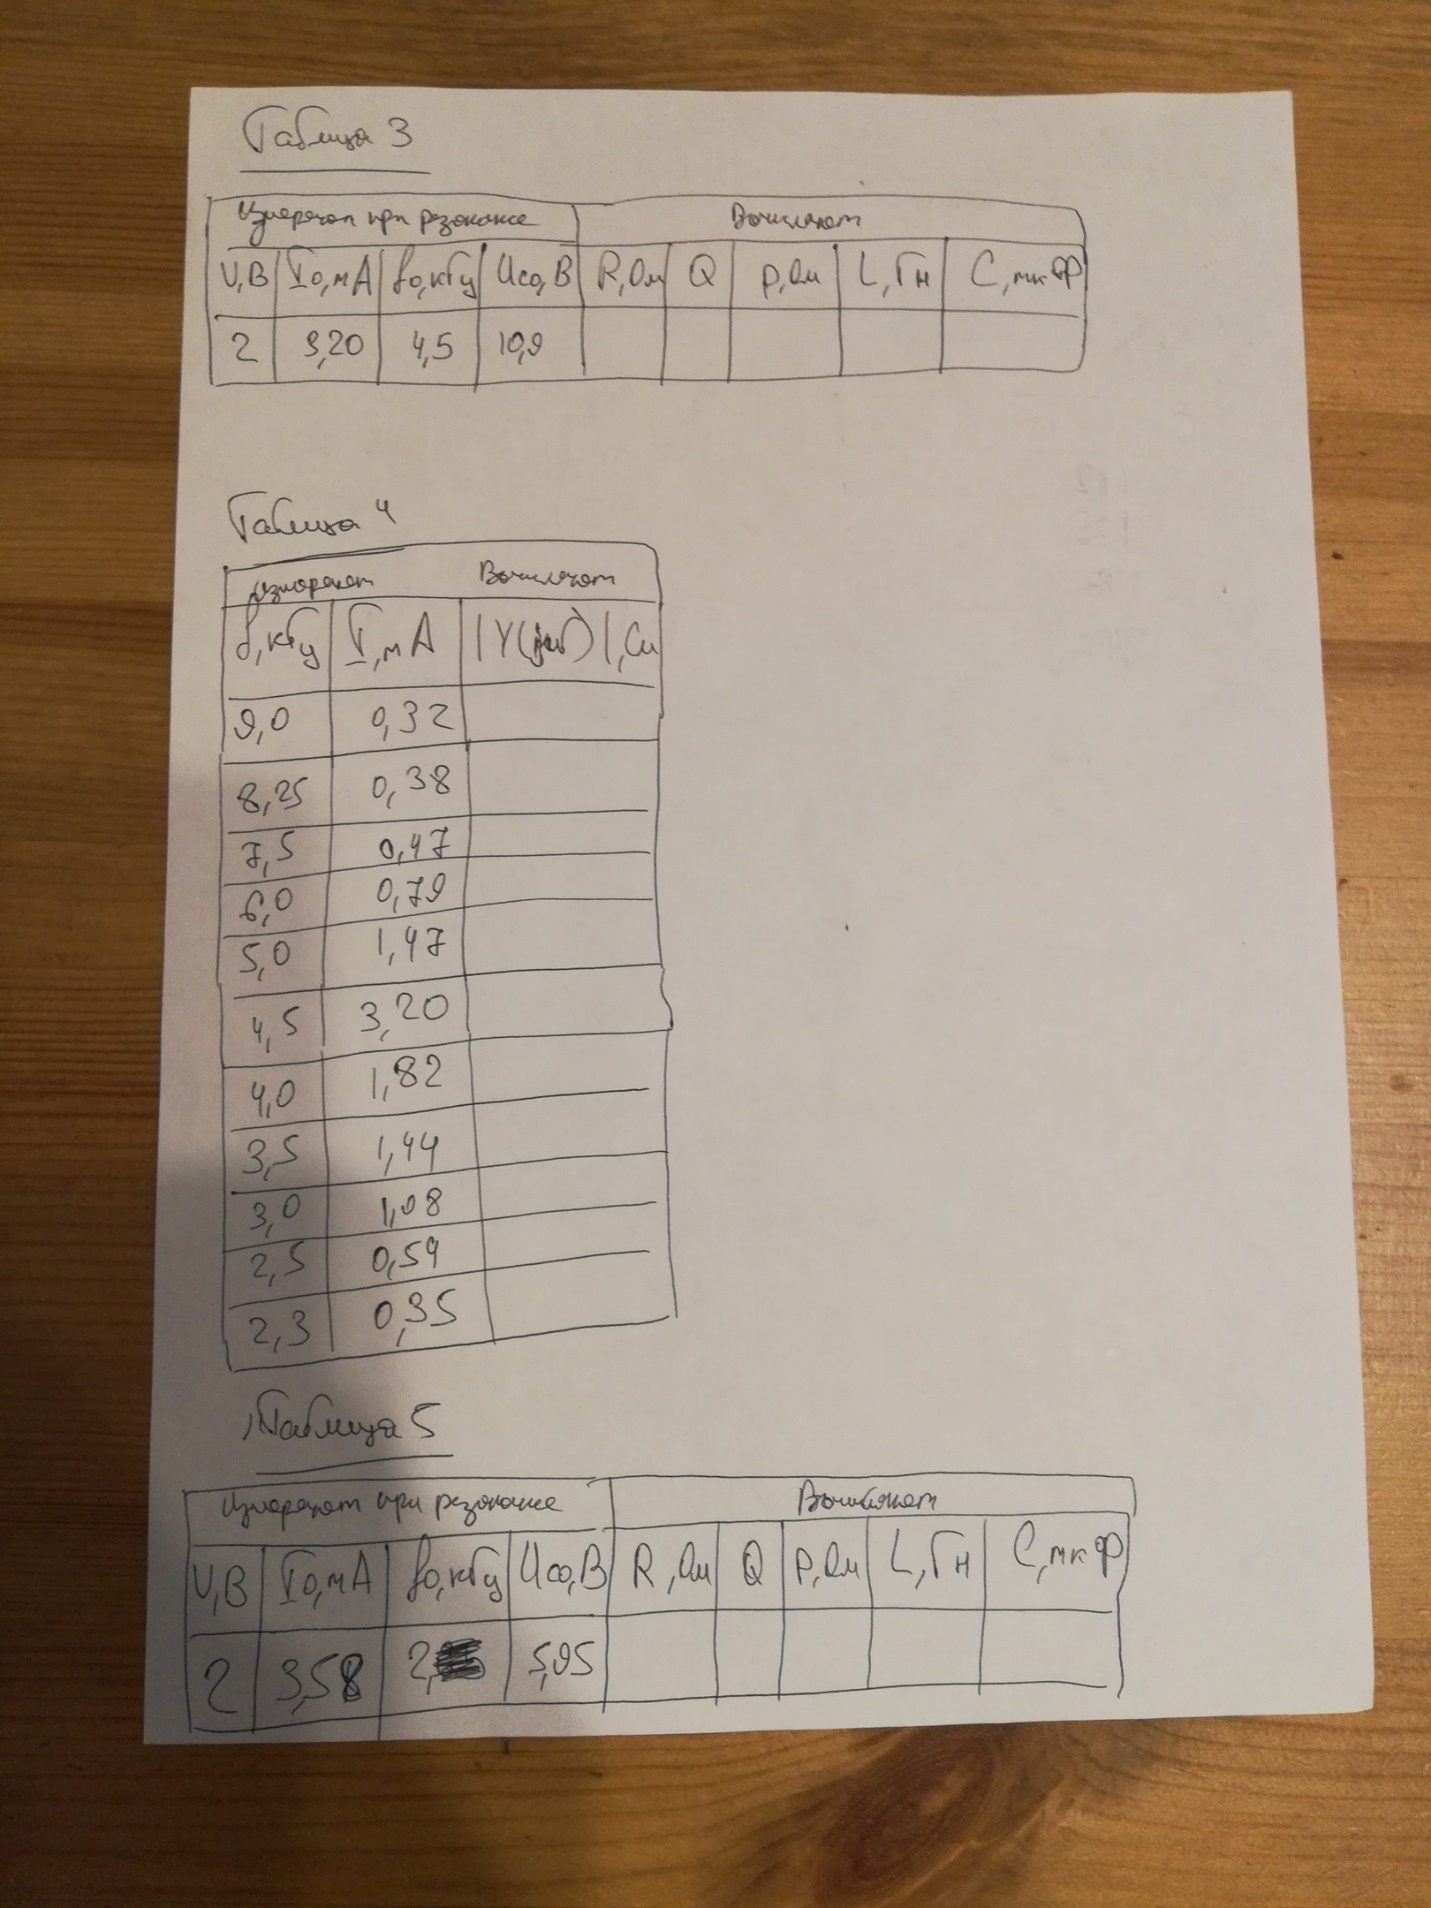 Таблица 3
Измеряют при резонансе Вычисляют
U,В I0,мА f0,кГц Uco,В R,Ом Q ρ,Ом L,Гн C,мкФ
2 3,20 4,5 10,9
Таблица 4
Измеряют Вычисляют
f,кГц I,мА |Y(jω)|,См
9,0 0,32
8,25 0,38
7,5 0,47
6,0 0,79
5,0 1,47
4,5 3,20
4,0 1,82
3,5 1,44
3,0 1,08
2,5 0,59
2,3 0,35
Таблица 5
Измеряют при резонансе Вычисляют
U,В I0,мА f0,кГц Uco,В R,Ом Q ρ,Ом L,Гн C,мкФ
2 3,58 2, 5,95